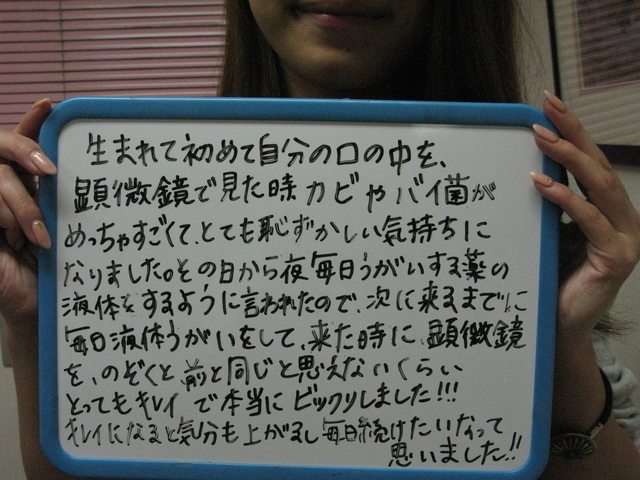 生まれて初めて自分の口の中を、
顕微鏡で見た時カビやバイ菌が
めっちゃすごくて、とても恥ずかしい気持ちに
なりました。その日から夜毎日うがいする薬の
液体をするように言われたので、次に来るまでに
毎日液体うがいをして、来た時に、顕微鏡
を、のぞくと前と同じと思えないくらい
とってもキレイで本当にビックリしました!!!
キレイになると気分も上がるし毎日続けたいなって
思いました!!